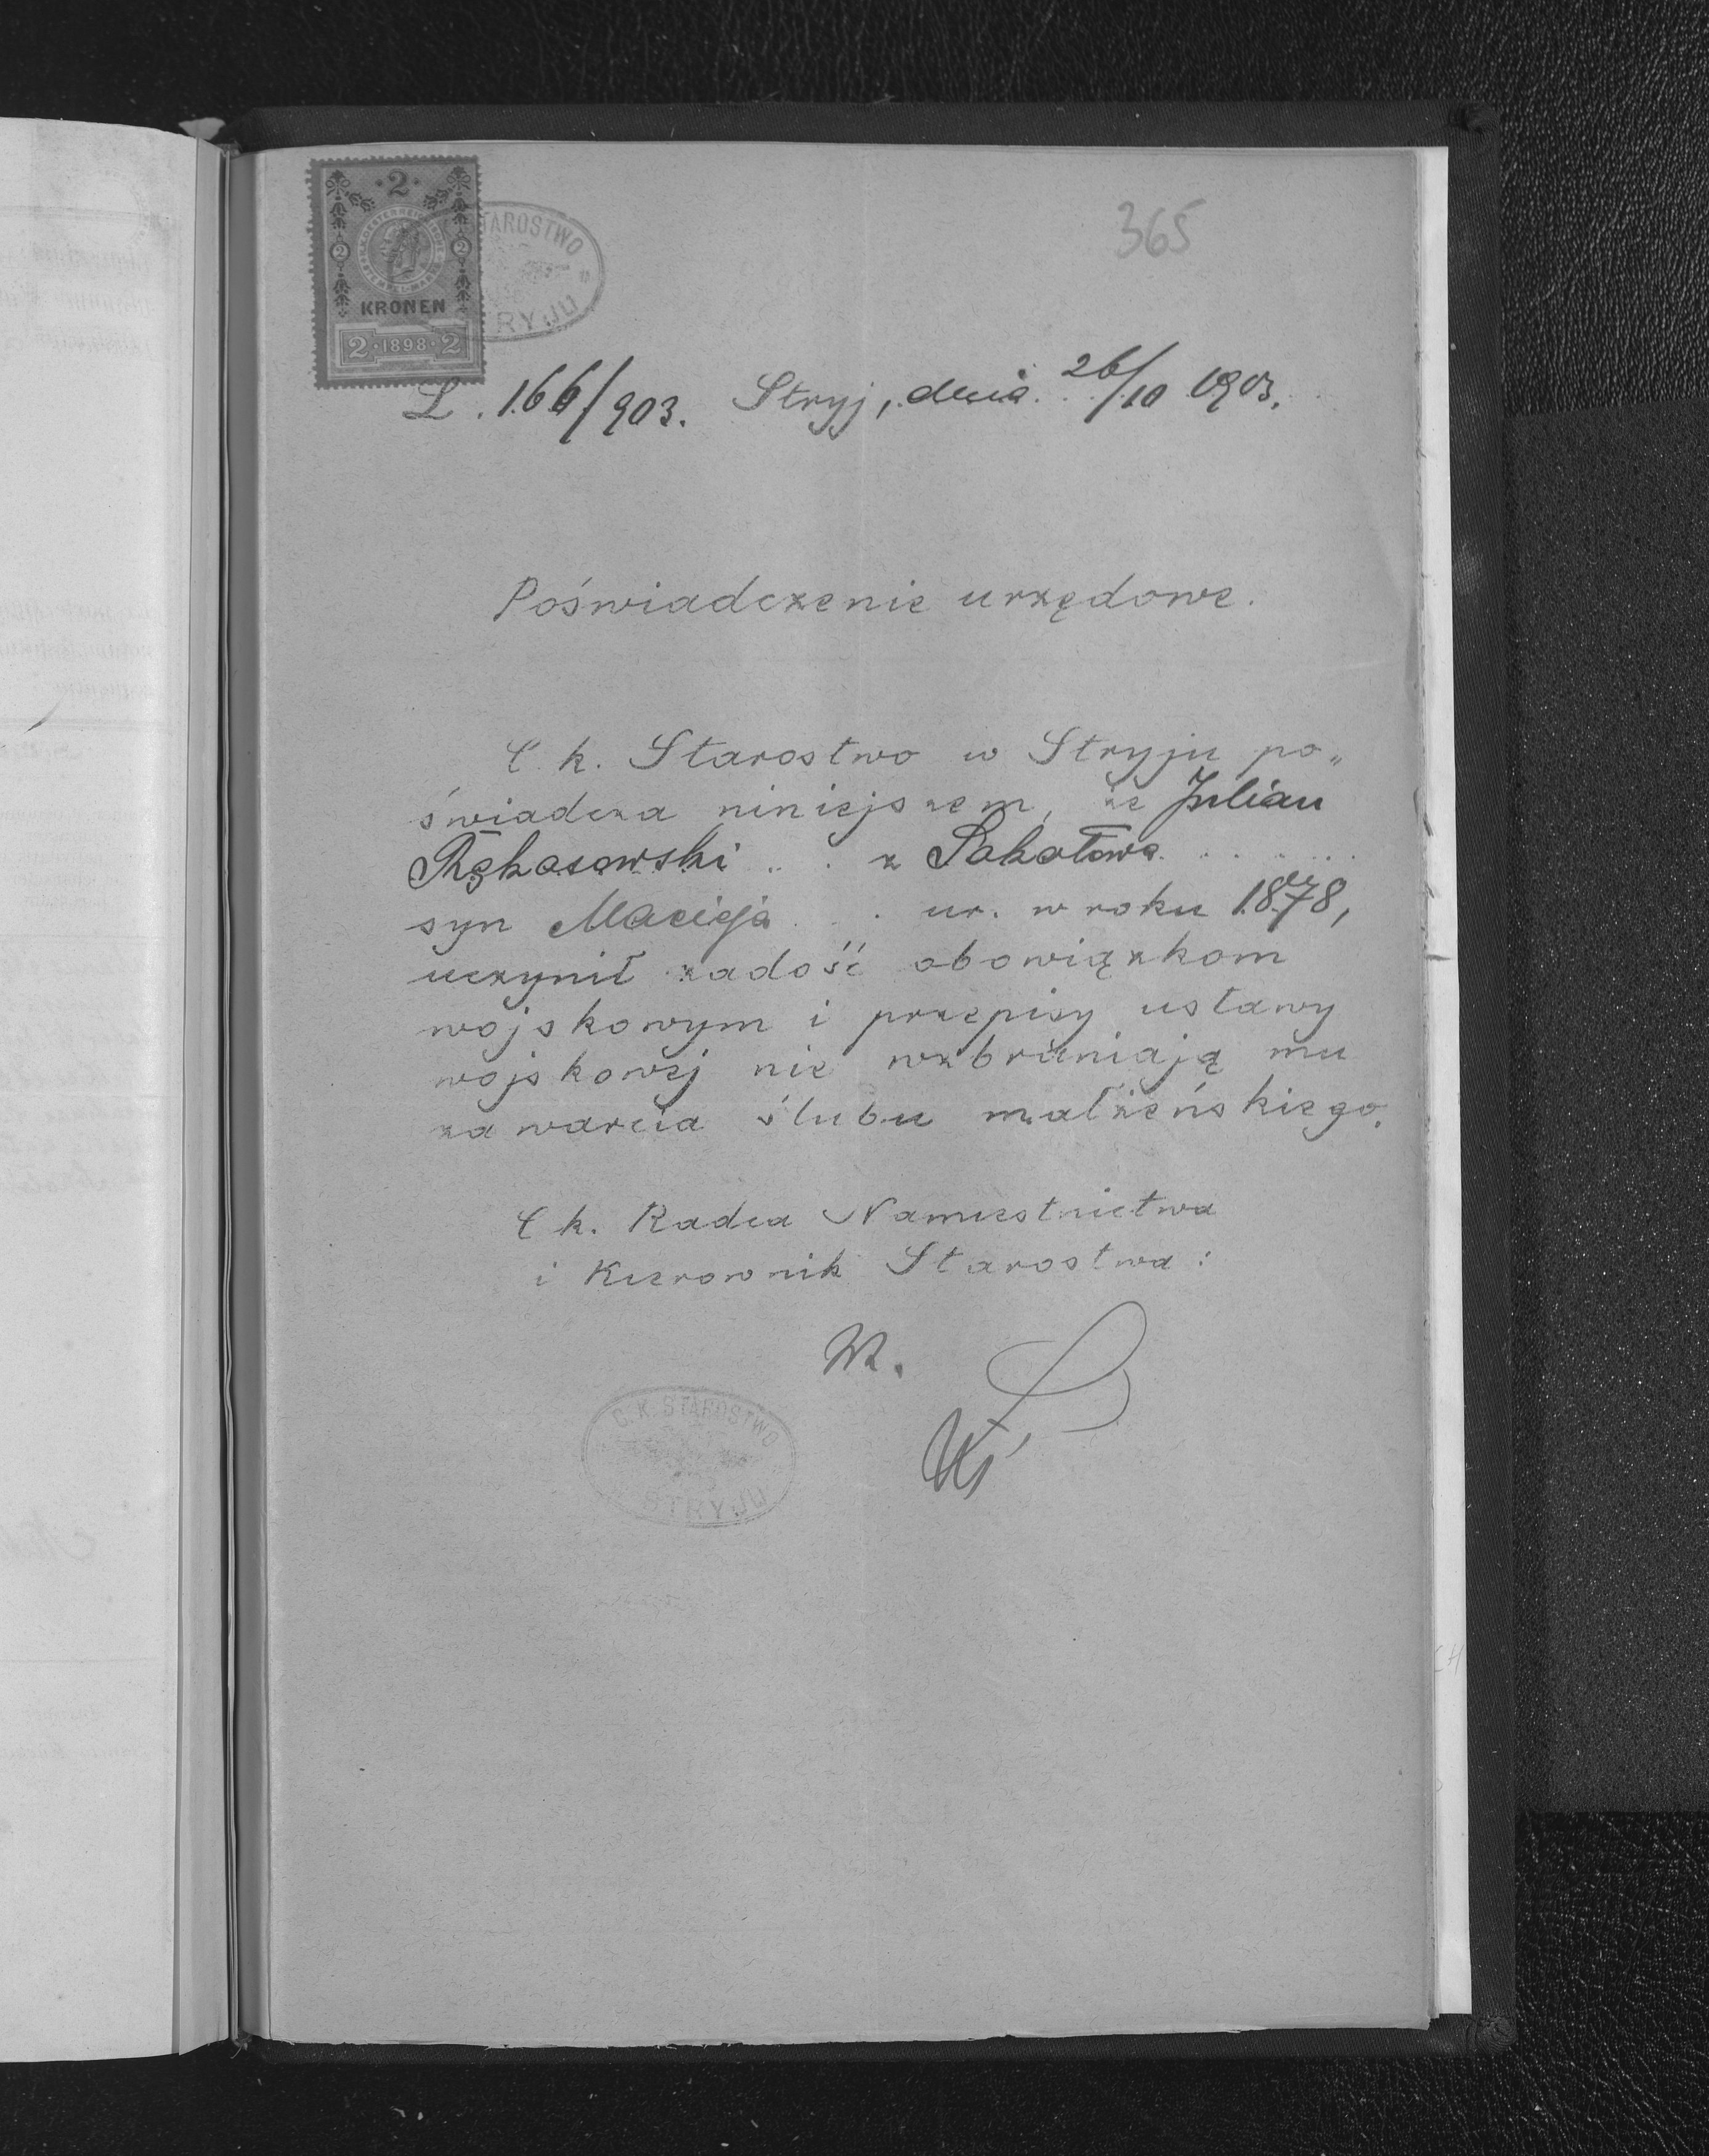 2
KRONEN
2 · 1898 · 2
STAROSTWO
STRYJU
365
L. 166/903. Stryj, dnia 26/10 1903.
Poświadczenie urzędowe.
C. k. Starostwo w Stryju po„
świadcza niniejszem, że Julian
Rękasowski z Sokołowa
syn Macieja ur. w roku 1878,
uczynił zadość obowiązkom
wojskowym i przepisy ustawy
wojskowej nie wzbraniają mu
zawarcia ślubu małżeńskiego.
C. k. Radca Namiestnictwa
i Kierownik Starostwa:
C. K. STAROSTWO
STRYJU